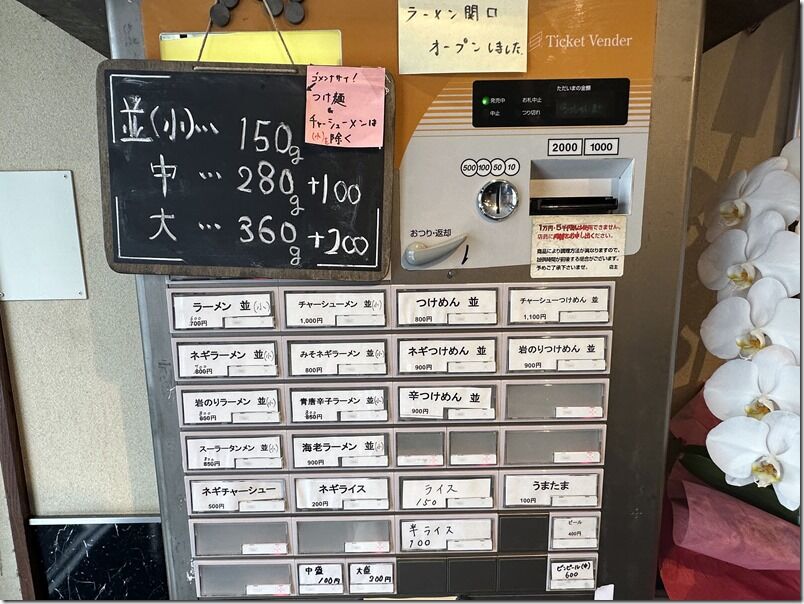 ラーメン関口
オープンしました
Ticket Vender
ゴメンナサイ!
つけ麺
&
チャーシューメンは
(小)を除く
並(小)… 150g
中 … 280g +100
大 … 360g +200
ただいまの金額
発売中 お札中止
中止 つり切れ
500 100 50 10
2000 1000
おつり・返却
1万円・5千円札は使用できません。
商品により調理方法が異なりますので、
予めご了承下さいませ。 店主
ラーメン 並(小)
600
700円
チャーシューメン 並(小)
1,000円
つけめん 並
800円
チャーシューつけめん 並
1,100円
ネギラーメン 並(小)
700
800円
みそネギラーメン 並(小)
800円
ネギつけめん 並
900円
岩のりつけめん 並
900円
岩のりラーメン 並(小)
800
850円
青唐辛子ラーメン 並(小)
800
850円
辛つけめん 並
900円
スーラータンメン 並(小)
800
850円
海老ラーメン 並(小)
900円
ネギチャーシュー
500円
ネギライス
200円
ライス
150
うまたま
100円
半ライス
100
ビール
400円
中盛
100円
大盛
200円
ビンビール(中)
600